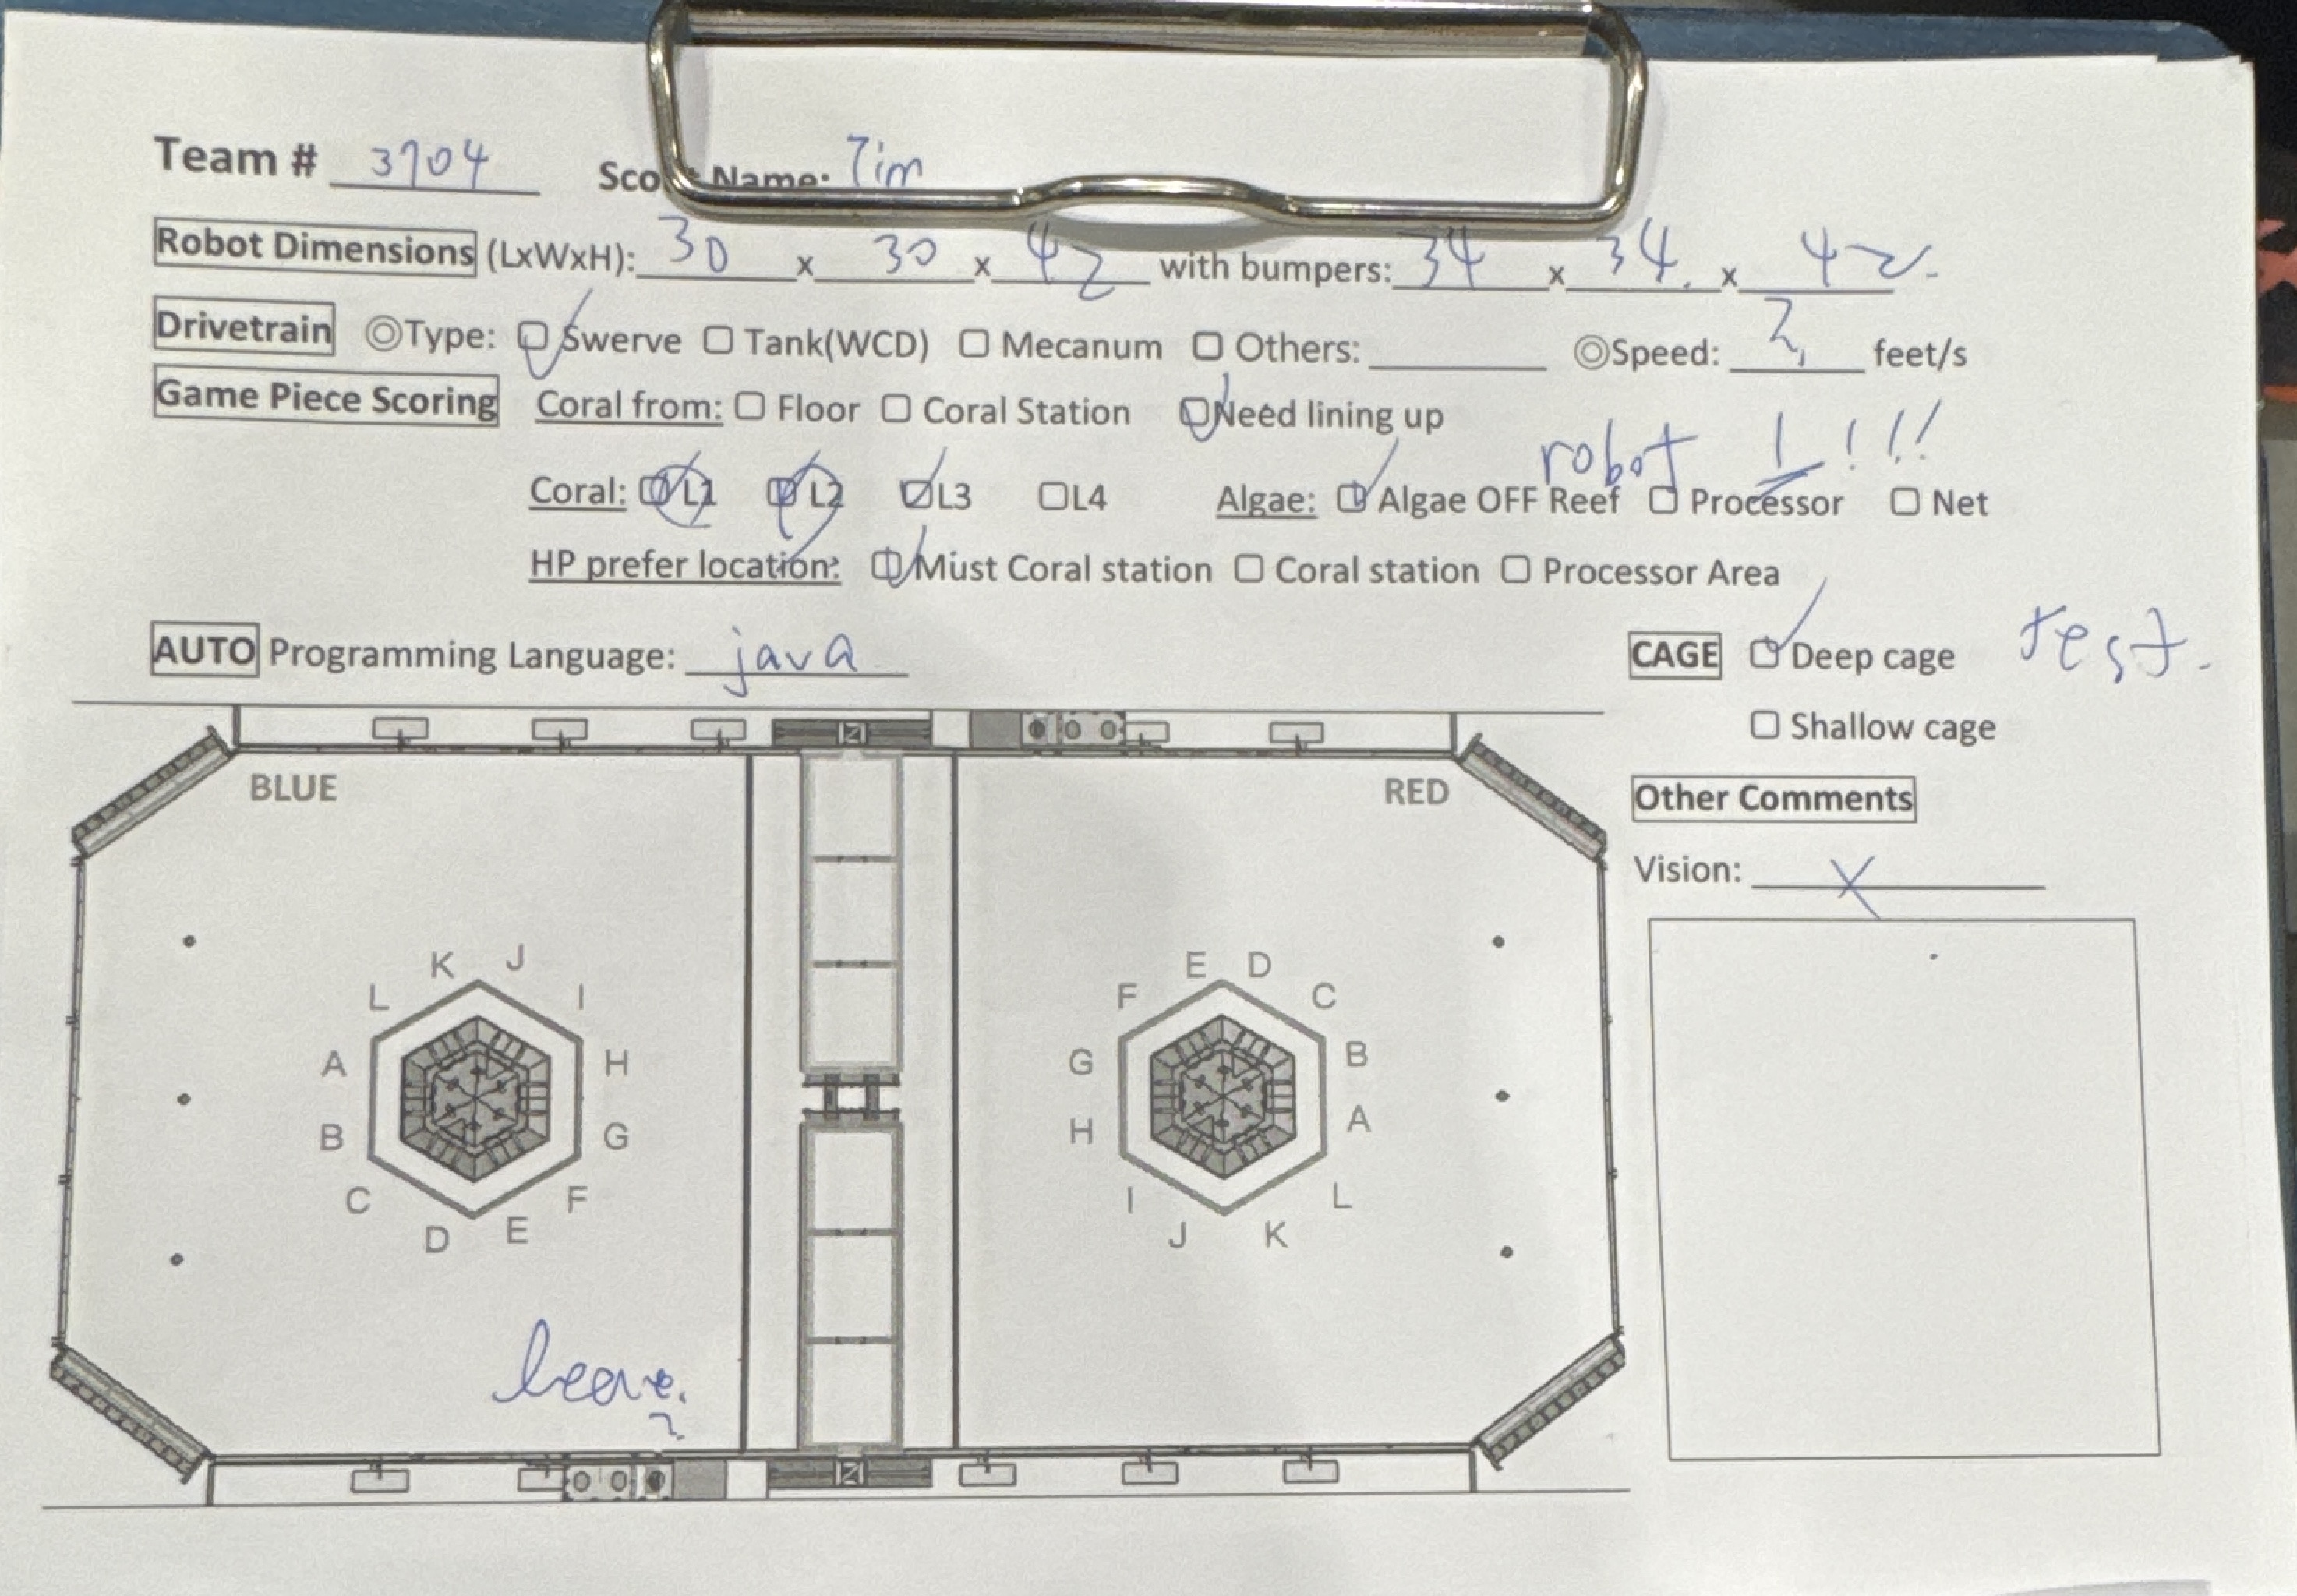 Team # 3704 Scout Name: Tim
Robot Dimensions (LxWxH): 30 x 30 x 42 with bumpers: 34 x 34. x 42.
Drivetrain ◎Type: ☑ Swerve ☐ Tank(WCD) ☐ Mecanum ☐ Others: ______ ◎Speed: ____ feet/s
Game Piece Scoring Coral from: ☐ Floor ☐ Coral Station ☑ Need lining up
robot 1 !!!
Coral: ☑ L1 ☑ L2 ☑ L3 ☐ L4 Algae: ☑ Algae OFF Reef ☐ Processor ☐ Net
HP prefer location: ☑ Must Coral station ☐ Coral station ☐ Processor Area
AUTO Programming Language: java
CAGE ☑ Deep cage test.
☐ Shallow cage
BLUE
RED
Other Comments
Vision: X
K J
L I
A H
B G
C F
D E
E D
F C
G B
H A
I L
J K
leave.
?